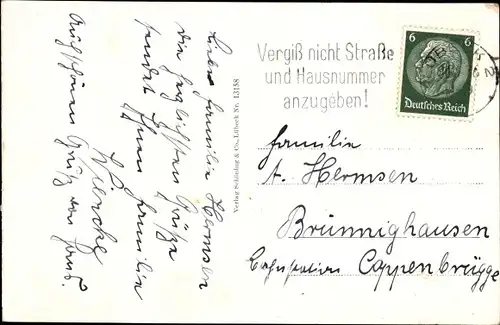 Liebe Familie Hermsen
die herzlichsten Grüße
sendet Ihnen Familie
Wiencke
Auch schönen Gruß von
Verlag Schöning & Co., Lübeck Nr. 13188
Vergiß nicht Straße
und Hausnummer
anzugeben!
6 6
Deutsches Reich
Familie
A. Hermsen
Brünnighausen
Bahnstation Coppenbrügge